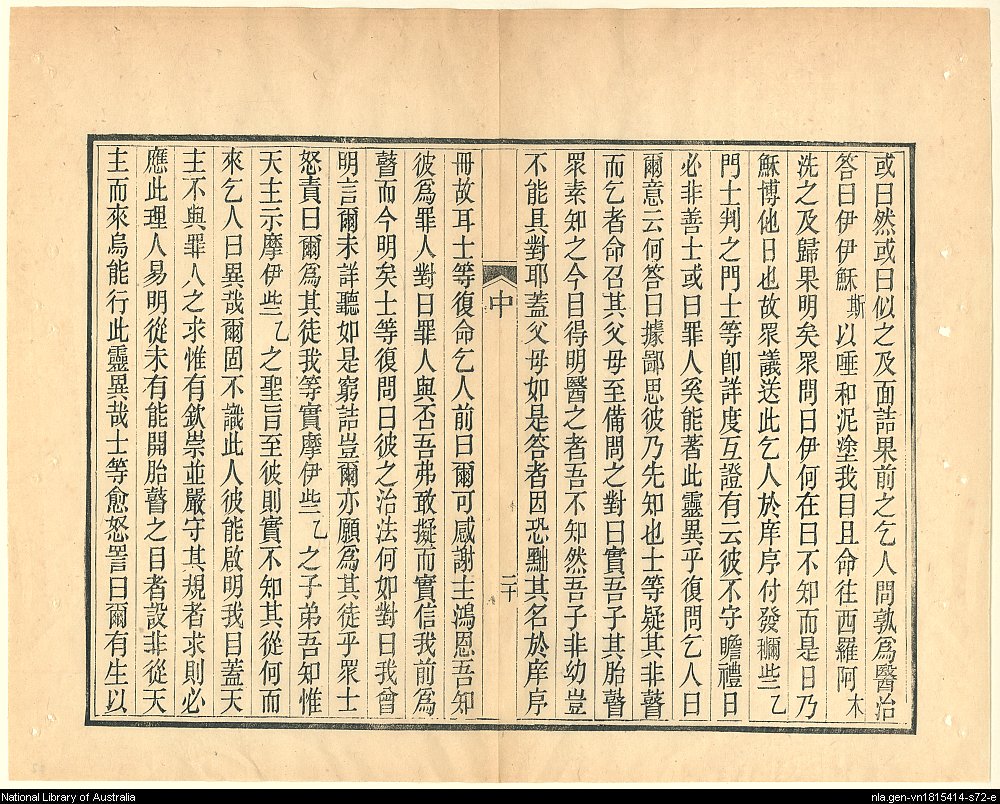 或曰然或曰似之及面詰果前之乞人問孰爲醫治
答曰伊伊穌斯以唾和泥塗我目且命往西羅阿木
洗之及歸果明矣眾問曰伊何在曰不知而是日乃
穌博他日也故眾議送此乞人於庠序付發穪些乙
門士判之門士等卽詳度互證有云彼不守瞻禮日
必非善士或曰罪人奚能著此靈異乎復問乞人曰
爾意云何答曰據鄙思彼乃先知也士等疑其非瞽
而乞者命召其父母至備問之對曰實吾子其胎瞽
眾素知之今目得明醫之者吾不知然吾子非幼豈
不能具對耶蓋父母如是答者因恐黜其名於庠序
中
二十
冊故耳士等復命乞人前曰爾可感謝主鴻恩吾知
彼爲罪人對曰罪人與否吾弗敢擬而實信我前爲
瞽而今明矣士等復問曰彼之治法何如對曰我曾
明言爾未詳聽如是窮詰豈爾亦願爲其徒乎眾士
怒責曰爾爲其徒我等實摩伊些乙之子弟吾知惟
天主示摩伊些乙之聖旨至彼則實不知其從何而
來乞人曰異哉爾固不識此人彼能啟明我目蓋天
主不與罪人之求惟有欽崇並嚴守其規者求則必
應此理人易明從未有能開胎瞽之目者設非從天
主而來烏能行此靈異哉士等愈怒詈曰爾有生以
National Library of Australia
nla.gen-vn1815414-s72-e